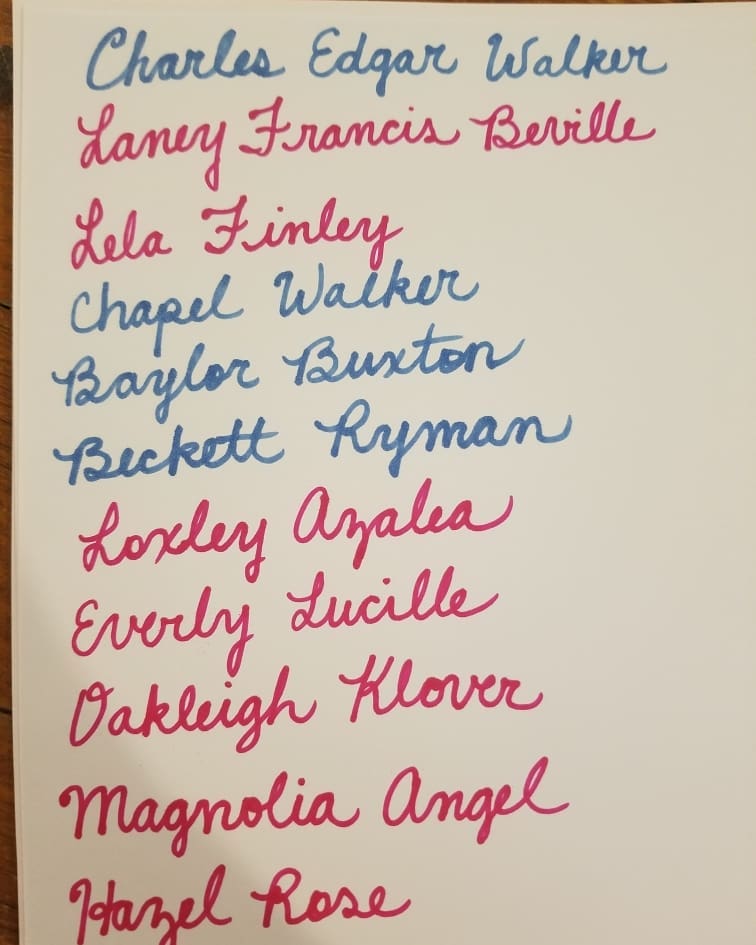 Charles Edgar Walker
Laney Francis Beville
Lela Finley
Chapel Walker
Baylor Buxton
Beckett Ryman
Loxley Azalea
Everly Lucille
Oakleigh Klover
Magnolia Angel
Hazel Rose